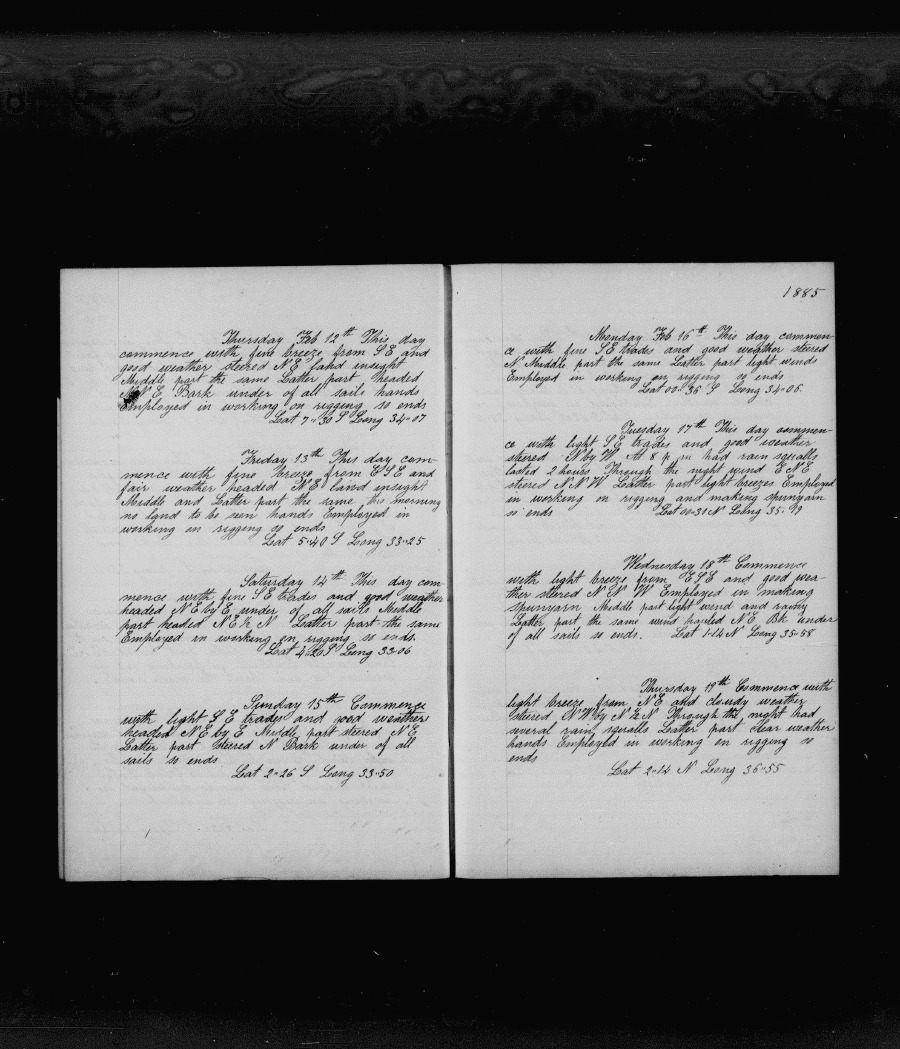 Thursday Feb 12th This day
commence with fine breeze from S E and
good weather steered N E land insight
Middle part the same Latter part headed
N E Bark under of all sails hands
Employed in working on rigging so ends
Lat 7-30 S Long 34-07
Friday 13th This day com-
mence with fine breeze from E S E and
fair weather headed N E land insight
Middle and Latter part the same this morning
no land to be seen hands Employed in
working on rigging so ends
Lat 5-40 S Long 33-25
Saturday 14th This day com
mence with fine S E trades and good weather
headed N E by E under of all sails Middle
part headed N E Latter part the same
Employed in working on rigging so ends.
Lat 4-26 S Long 33-06
Sunday 15th Commence
with light S E trades and good weather
headed N E by E Middle part steered N E
Latter part steered N Bark under of all
sails so ends
Lat 2-26 S Long 33-50
1885
Monday Feb 16th This day commen-
ce with fine S E trades and good weather steered
N Middle part the same Latter part light winds
Employed in working on rigging so ends
Lat 00-36 S Long 34-06
Tuesday 17th This day commen-
ce with light S E trades and good weather
steered N by W At 8 p m had rain squalls
lasted 2 hours Through the night wind E N E
steered N N W Latter part light breezes Employed
in working on rigging and making spunyarn
so ends Lat 00-31 N Long 35-
Wednesday 18th Commence
with light breeze from E S E and good wea-
ther steered N N W Employed in making
spunyarn Middle part light wind and rainy
Latter part the same wind hauled N E Bk under
of all sails so ends. Lat 1-14 N Long 35-58
Thursday 19th Commence with
light breeze from N E and cloudy weather
steered N W by N Through the night had
several rain squalls Latter part clear weather
hands Employed in working on rigging so
ends
Lat 2-14 N Long 36-55